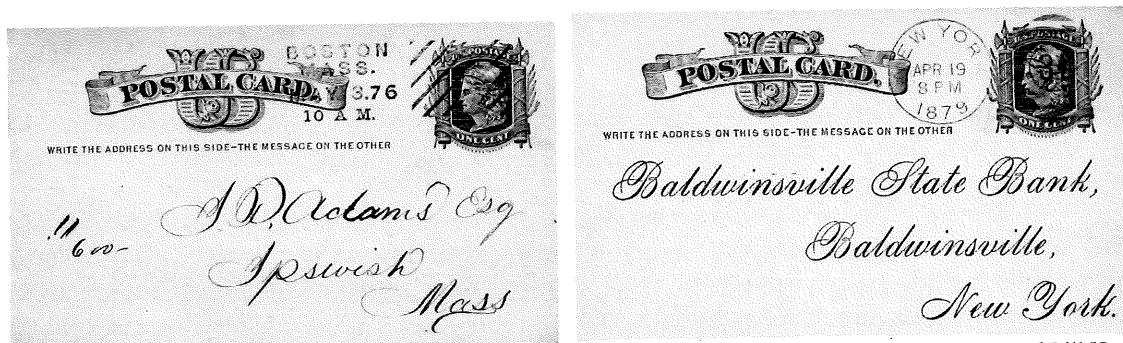 US
POSTAL CARD.
BOSTON
MASS.
Y 3.76
10 A M.
U.S. POSTAGE
ONE CENT
WRITE THE ADDRESS ON THIS SIDE–THE MESSAGE ON THE OTHER
S D. Adams Esq
Ipswich
Mass
600-
US
POSTAL CARD.
NEW YOR
APR 19
8 PM
1879
U.S. POSTAGE
ONE CENT
WRITE THE ADDRESS ON THIS SIDE–THE MESSAGE ON THE OTHER
Baldwinsville State Bank,
Baldwinsville,
New York.